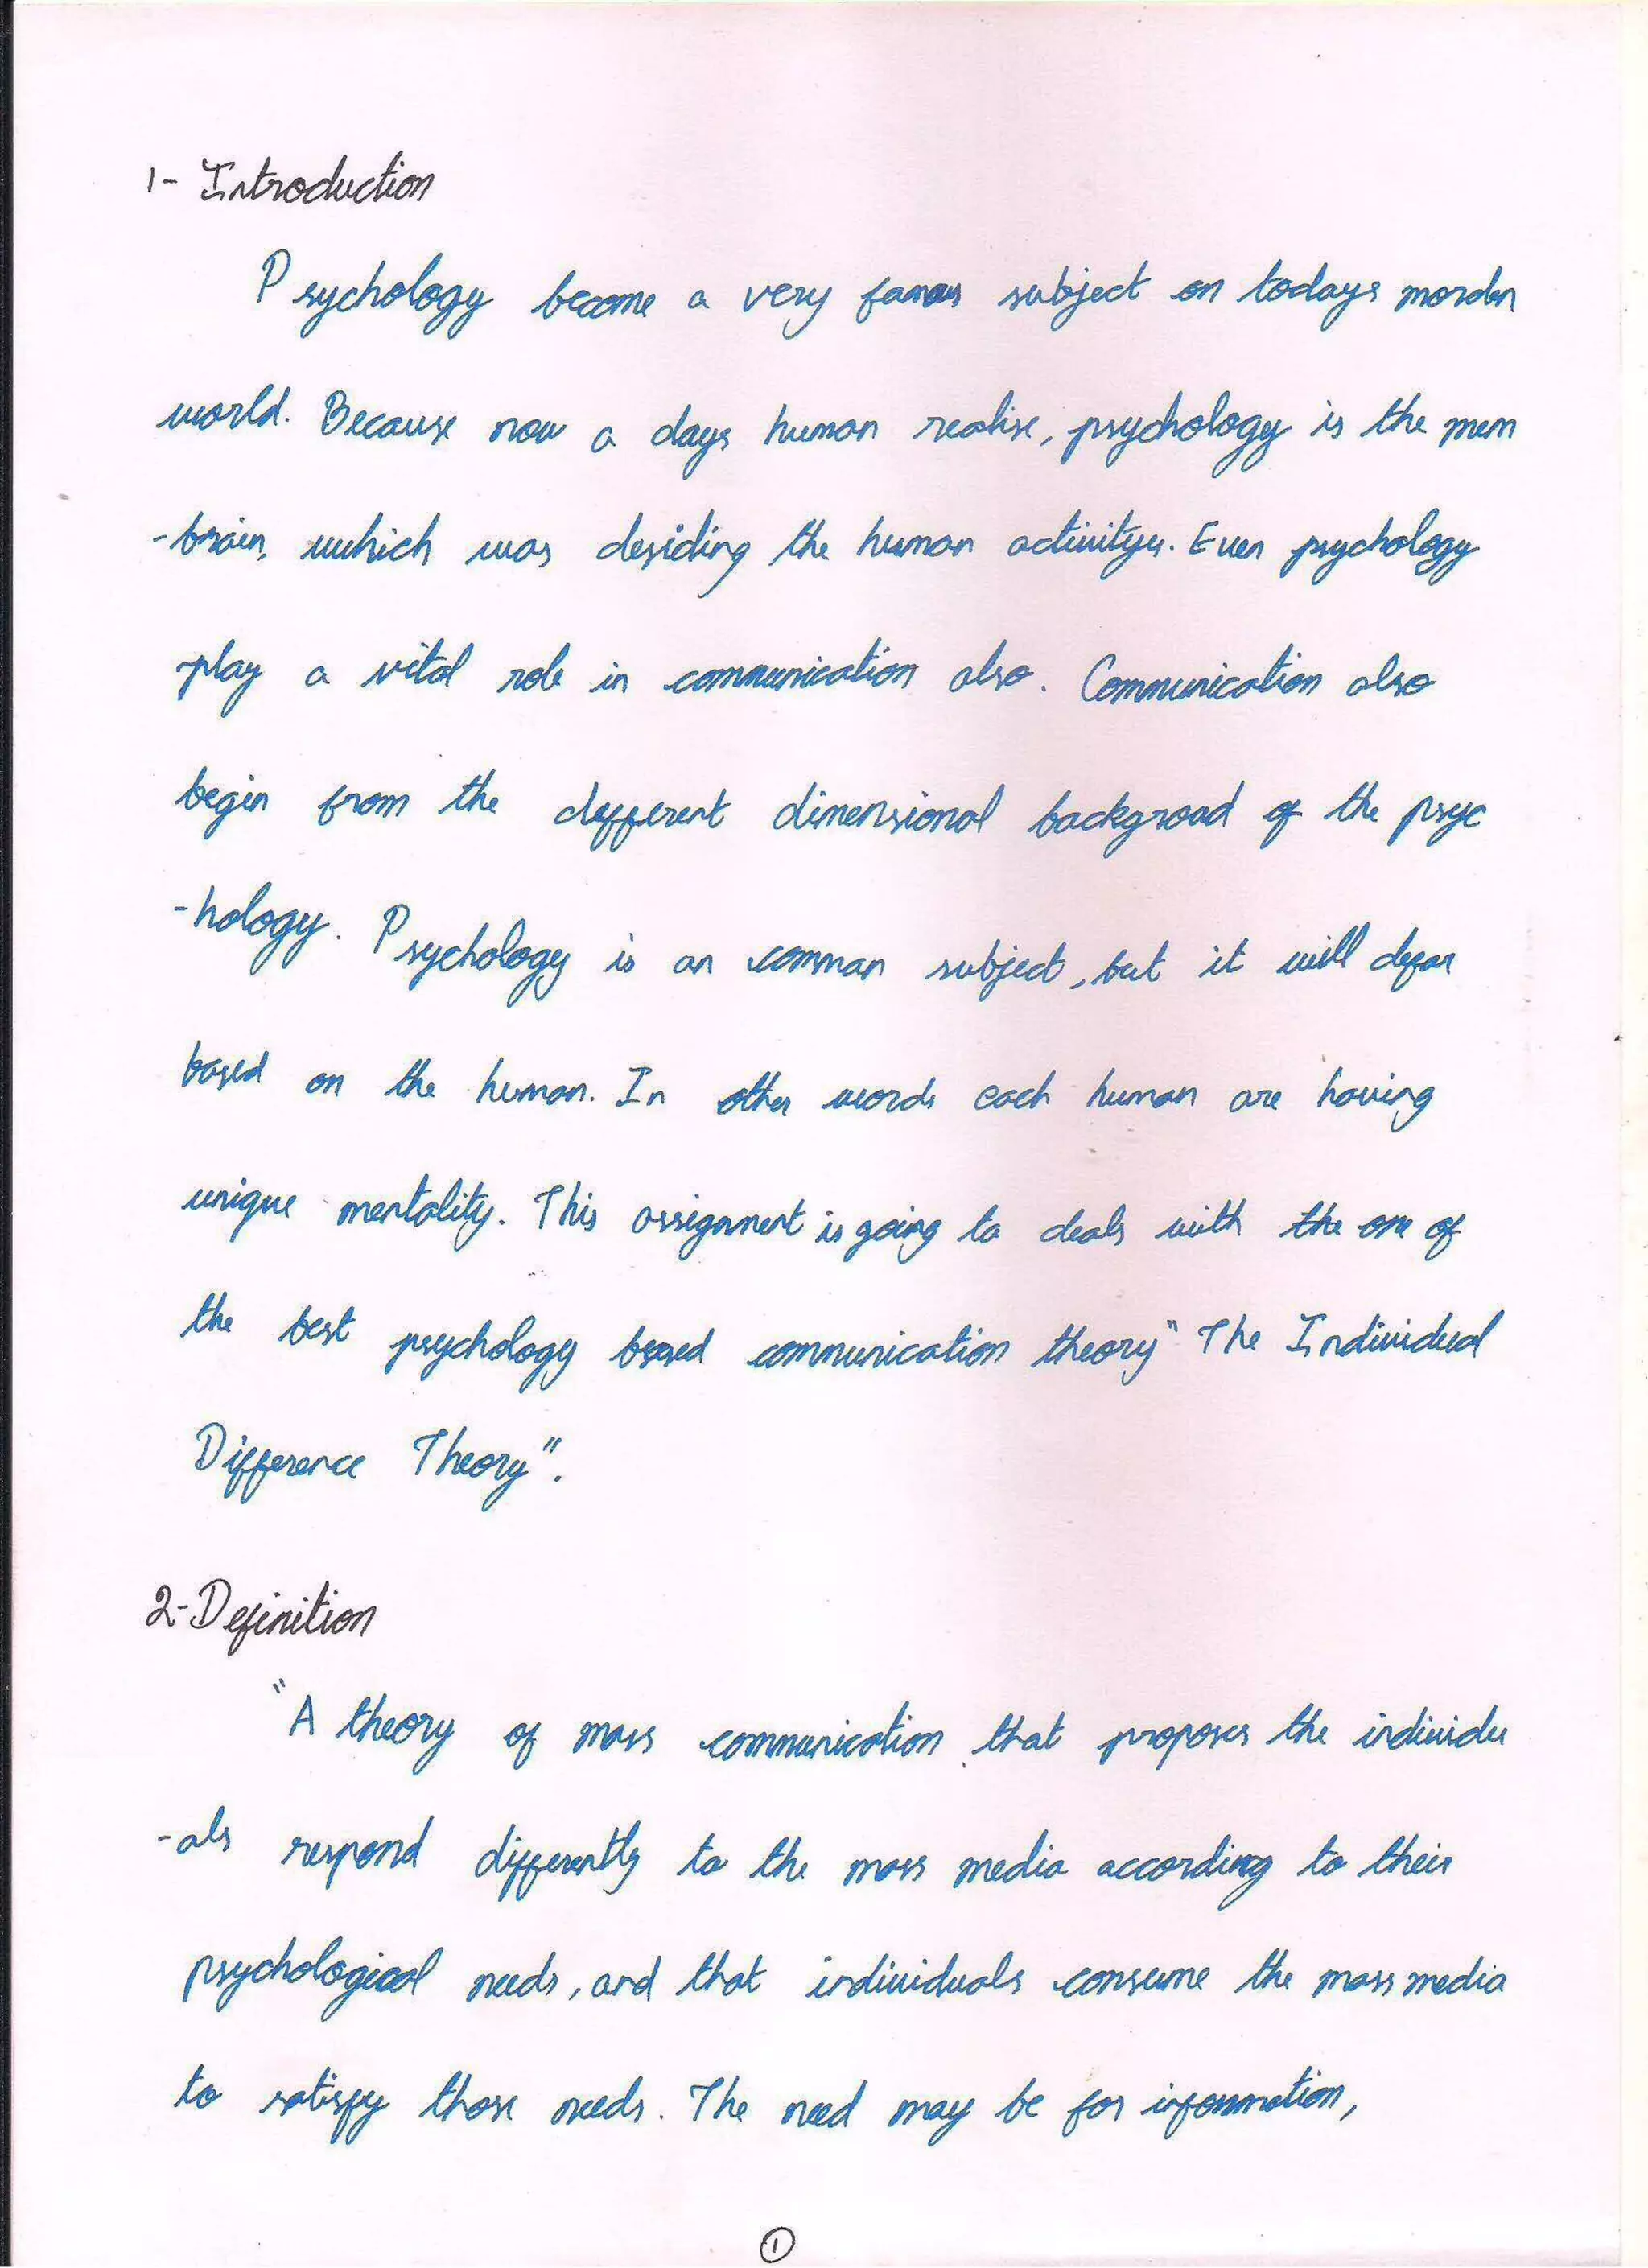 1- Introduction
Psychology become a very famous subject on todays morden
world. Because now a days human realise, psychology is the mem
-brain, which was desiding the human activitys. Even psychology
play a vital role in communication also. Communication also
begin from the defferent dimensional backgroad of the psyc
-hology. Psychology is an comman subject, but it will defar
based on the human. In other words each human are having
unique mentality. This assignment is going to deals with the one of
the best psychology based communication theory" The Individual
Difference Theory".
2-Definition
"A theory of mass communication that proposes the individu
-als respond differently to the mass media according to their
psychological needs, and that individuals consume the mass media
to satisfy those needs. The need may be for information,
1